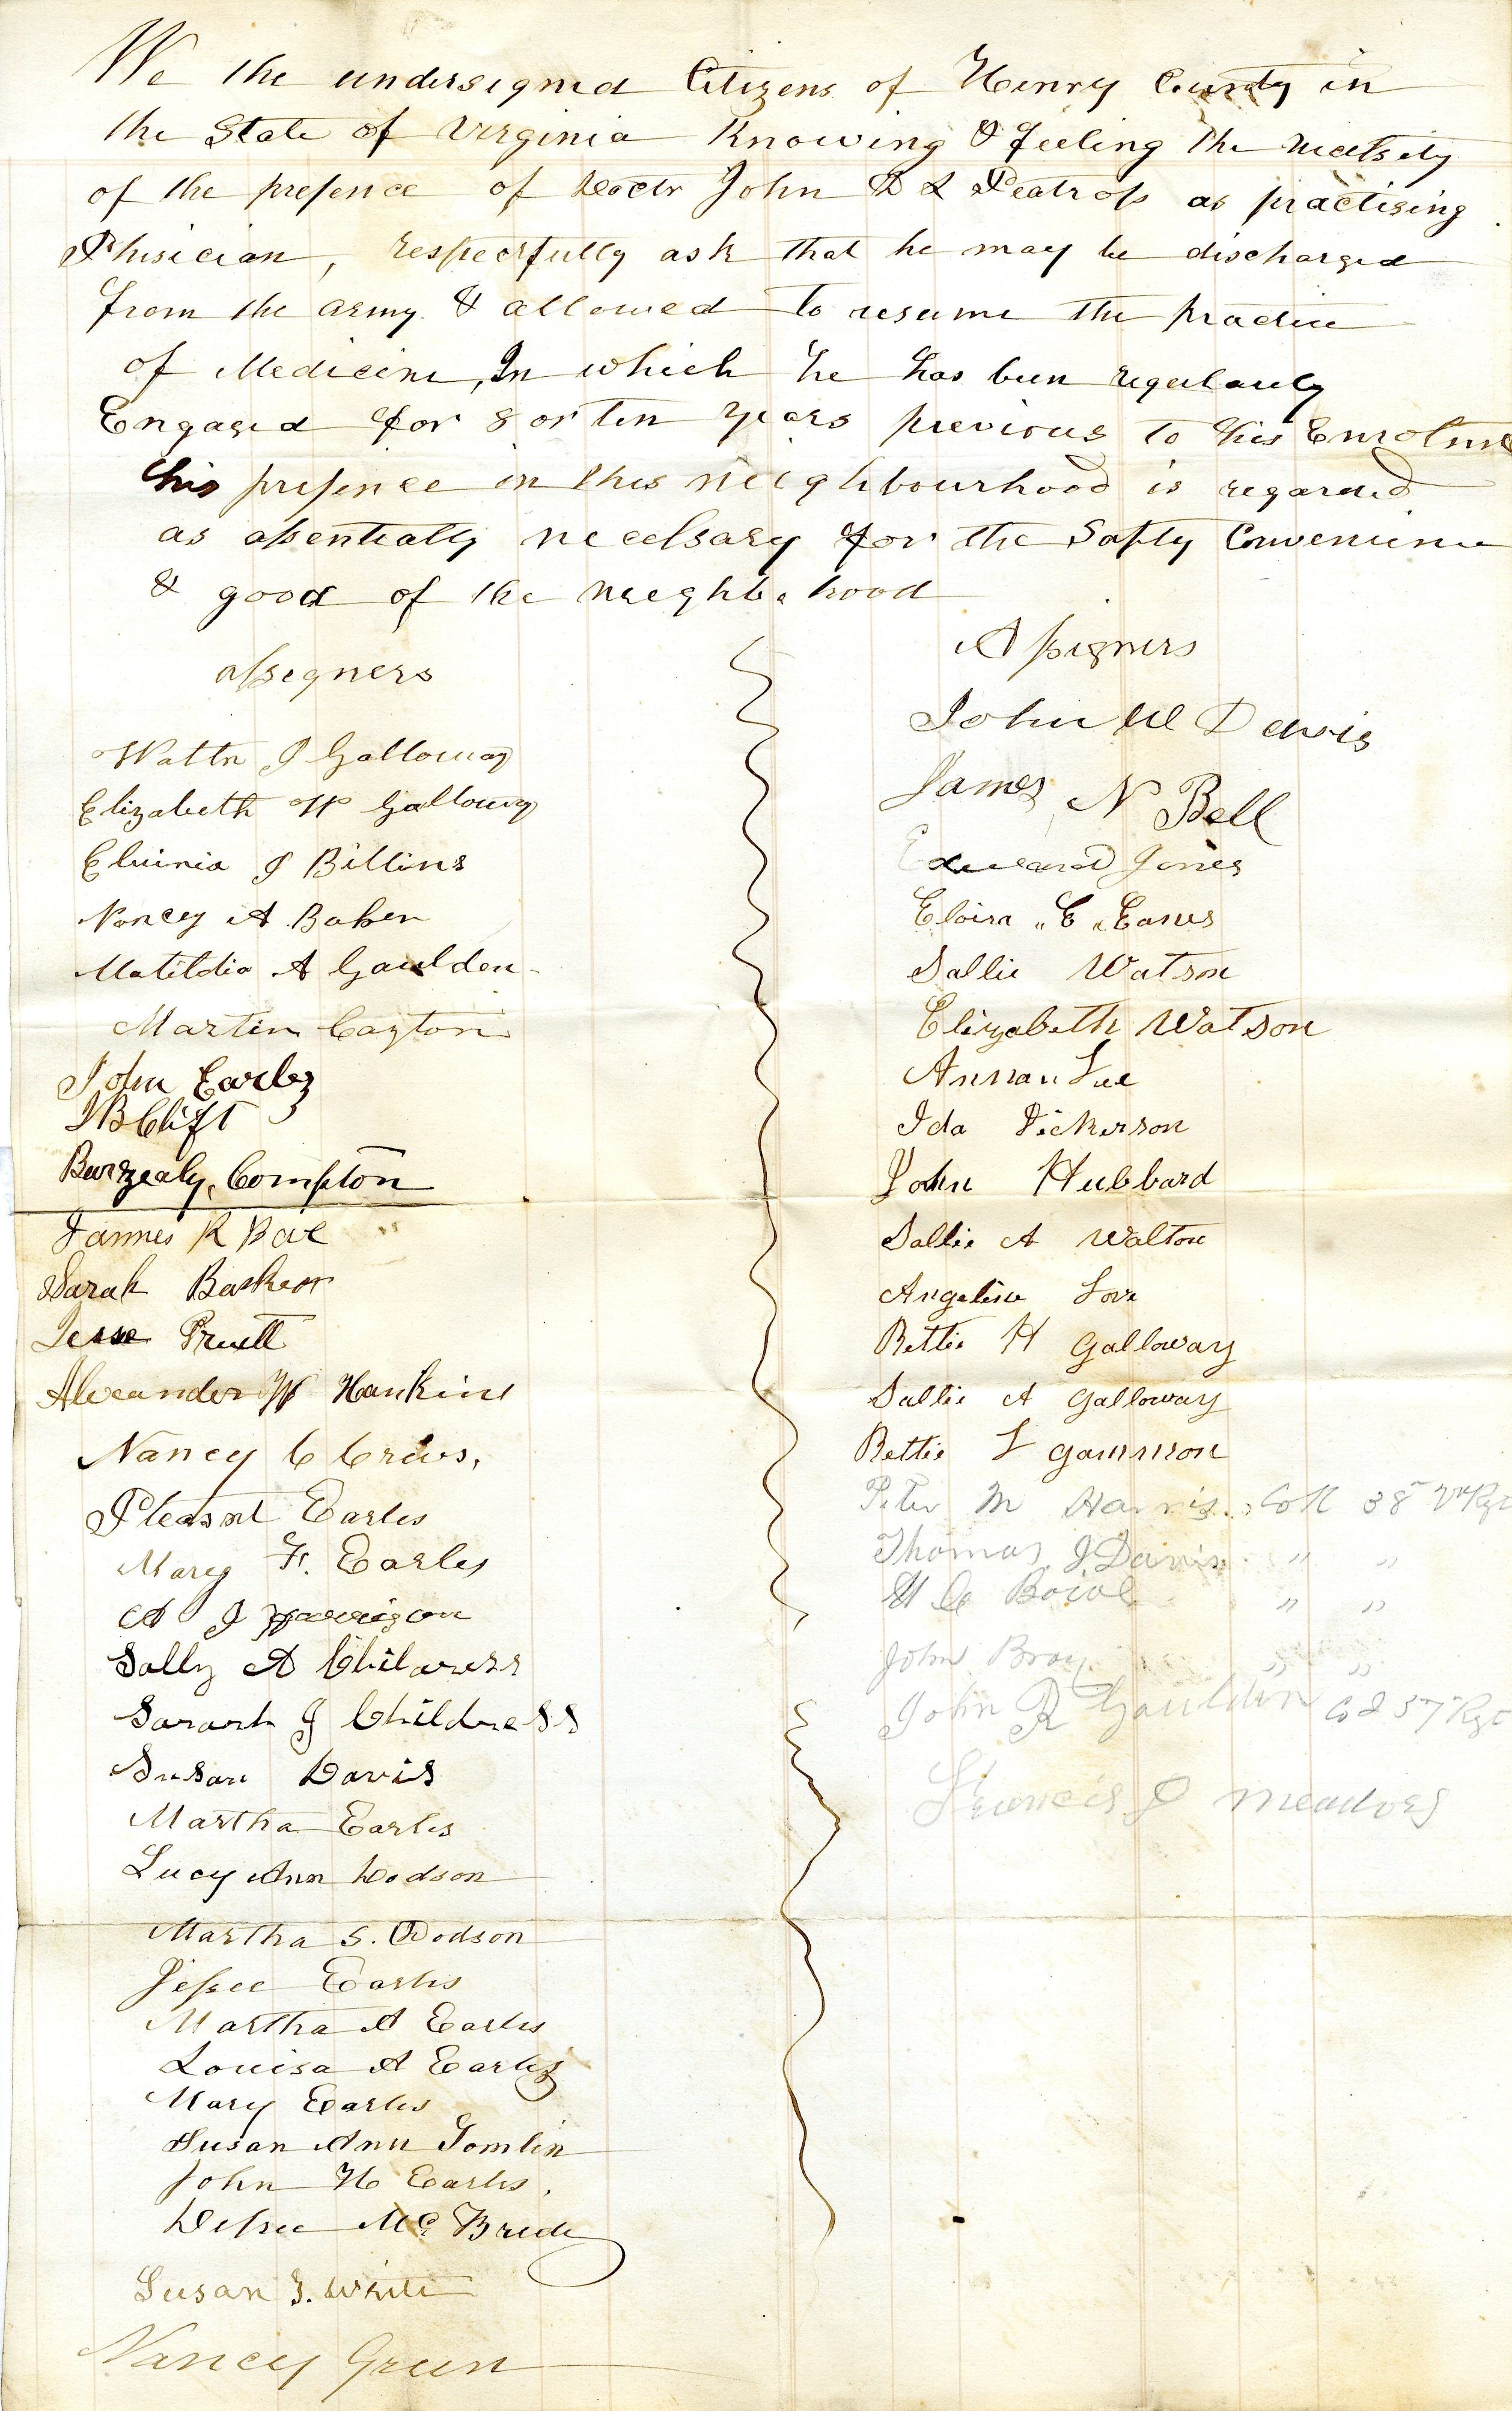 We the undersigned Citizens of Henry County in
the State of Virginia Knowing & feeling the necessity
of the presence of Doctr John D L Peatross as practising
Phisician, respectfully ask that he may be discharged
from the army & allowed to resume the practice
of Medicine, In which he has been regularly
Engaged for 8 or ten years previous to his Enrolme
his presence in this neighbourhood is regarded
as assentially necessary for the Safty Convenience
& good of the neighbohood
assegners
Walter J Galloway
Elizabeth W Galloway
J Billins
Nancy A Baker
Matildia A Gaulden
Martin Cayton
John Earles
J B Clift
Barzealy, Compton
James R
Sarah
Jesse Pruett
Alexander W Hankins
Nancy C Crews,
Pleasnt Earles
Mary F. Earles
A J Harrison
Sally A Childress
Sarah J Childress
Susan Davis
Martha Earles
Lucy Ann Dodson
Martha S. Dodson
Jessee Earles
Martha A Earles
Louisa A Earles
Mary Earles
Susan Ann Tomlin
John H Earles.
Mc Bride
Susan J. White
Nancy Green
Assigners
John W Davis
James N Bell
Edward Jones
E. Eanes
Sallie Watson
Elizabeth Watson
Annan Lee
Ida Dickerson
John Hubbard
Sallie A Walton
Angeline Love
Bettie H Galloway
Sallie A Galloway
Bettie L Gammon
Peter M Harris. Co H 38 Va Rgt
Thomas J Davis " "
John Bray " "
John R Gaulden Co I 57 Rgt
J Meadows